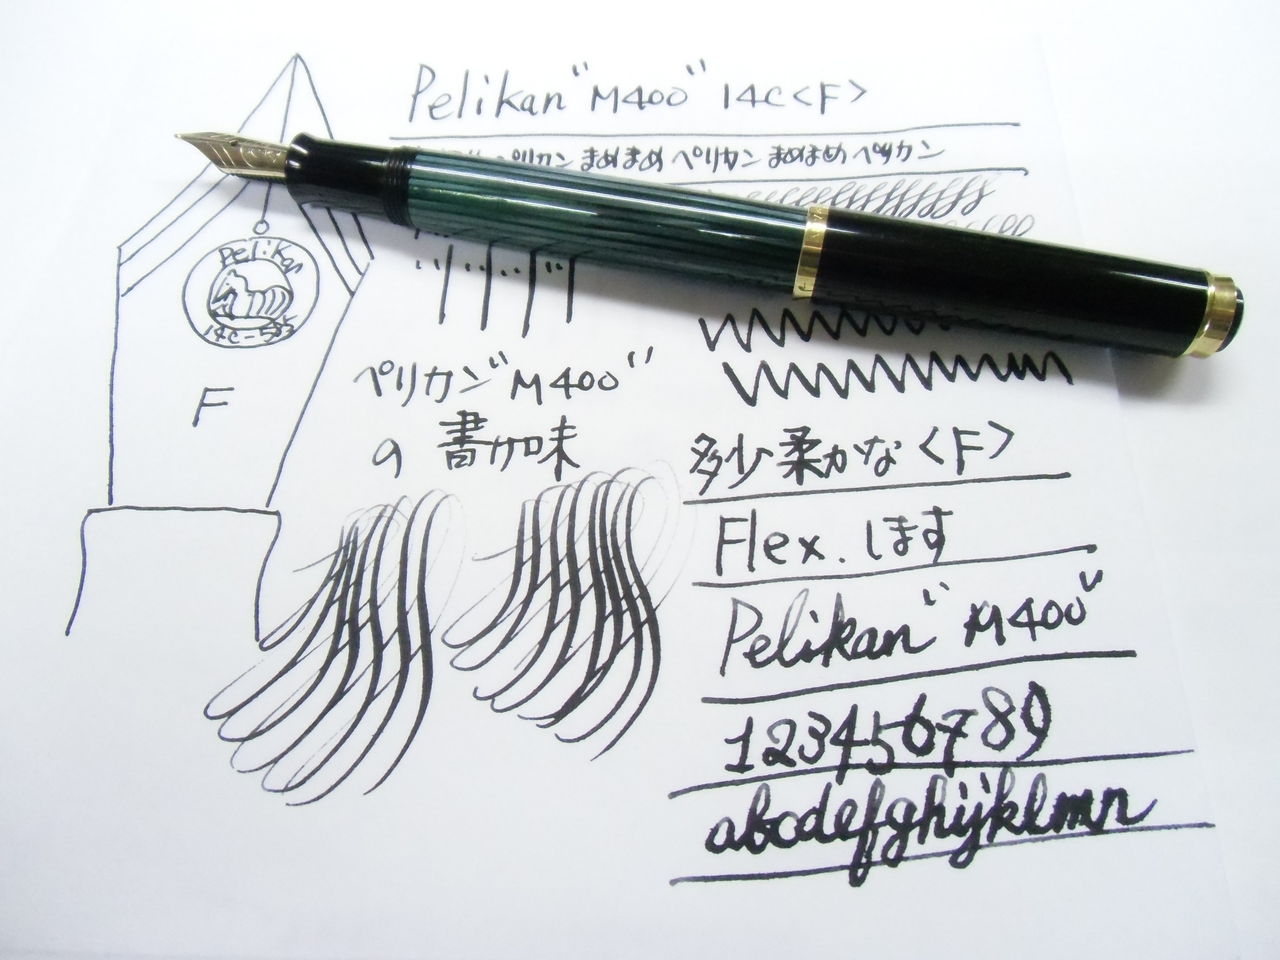 Pelikan "M400" 14C<F>
ペリカン まめまめ ペリカン まめまめ ペリカン
Pelikan
14C-585
F
ペリカン"M400"
の 書き味
多少柔かな<F>
Flex.します
Pelikan "M400"
123456789
abcdefghijklmn